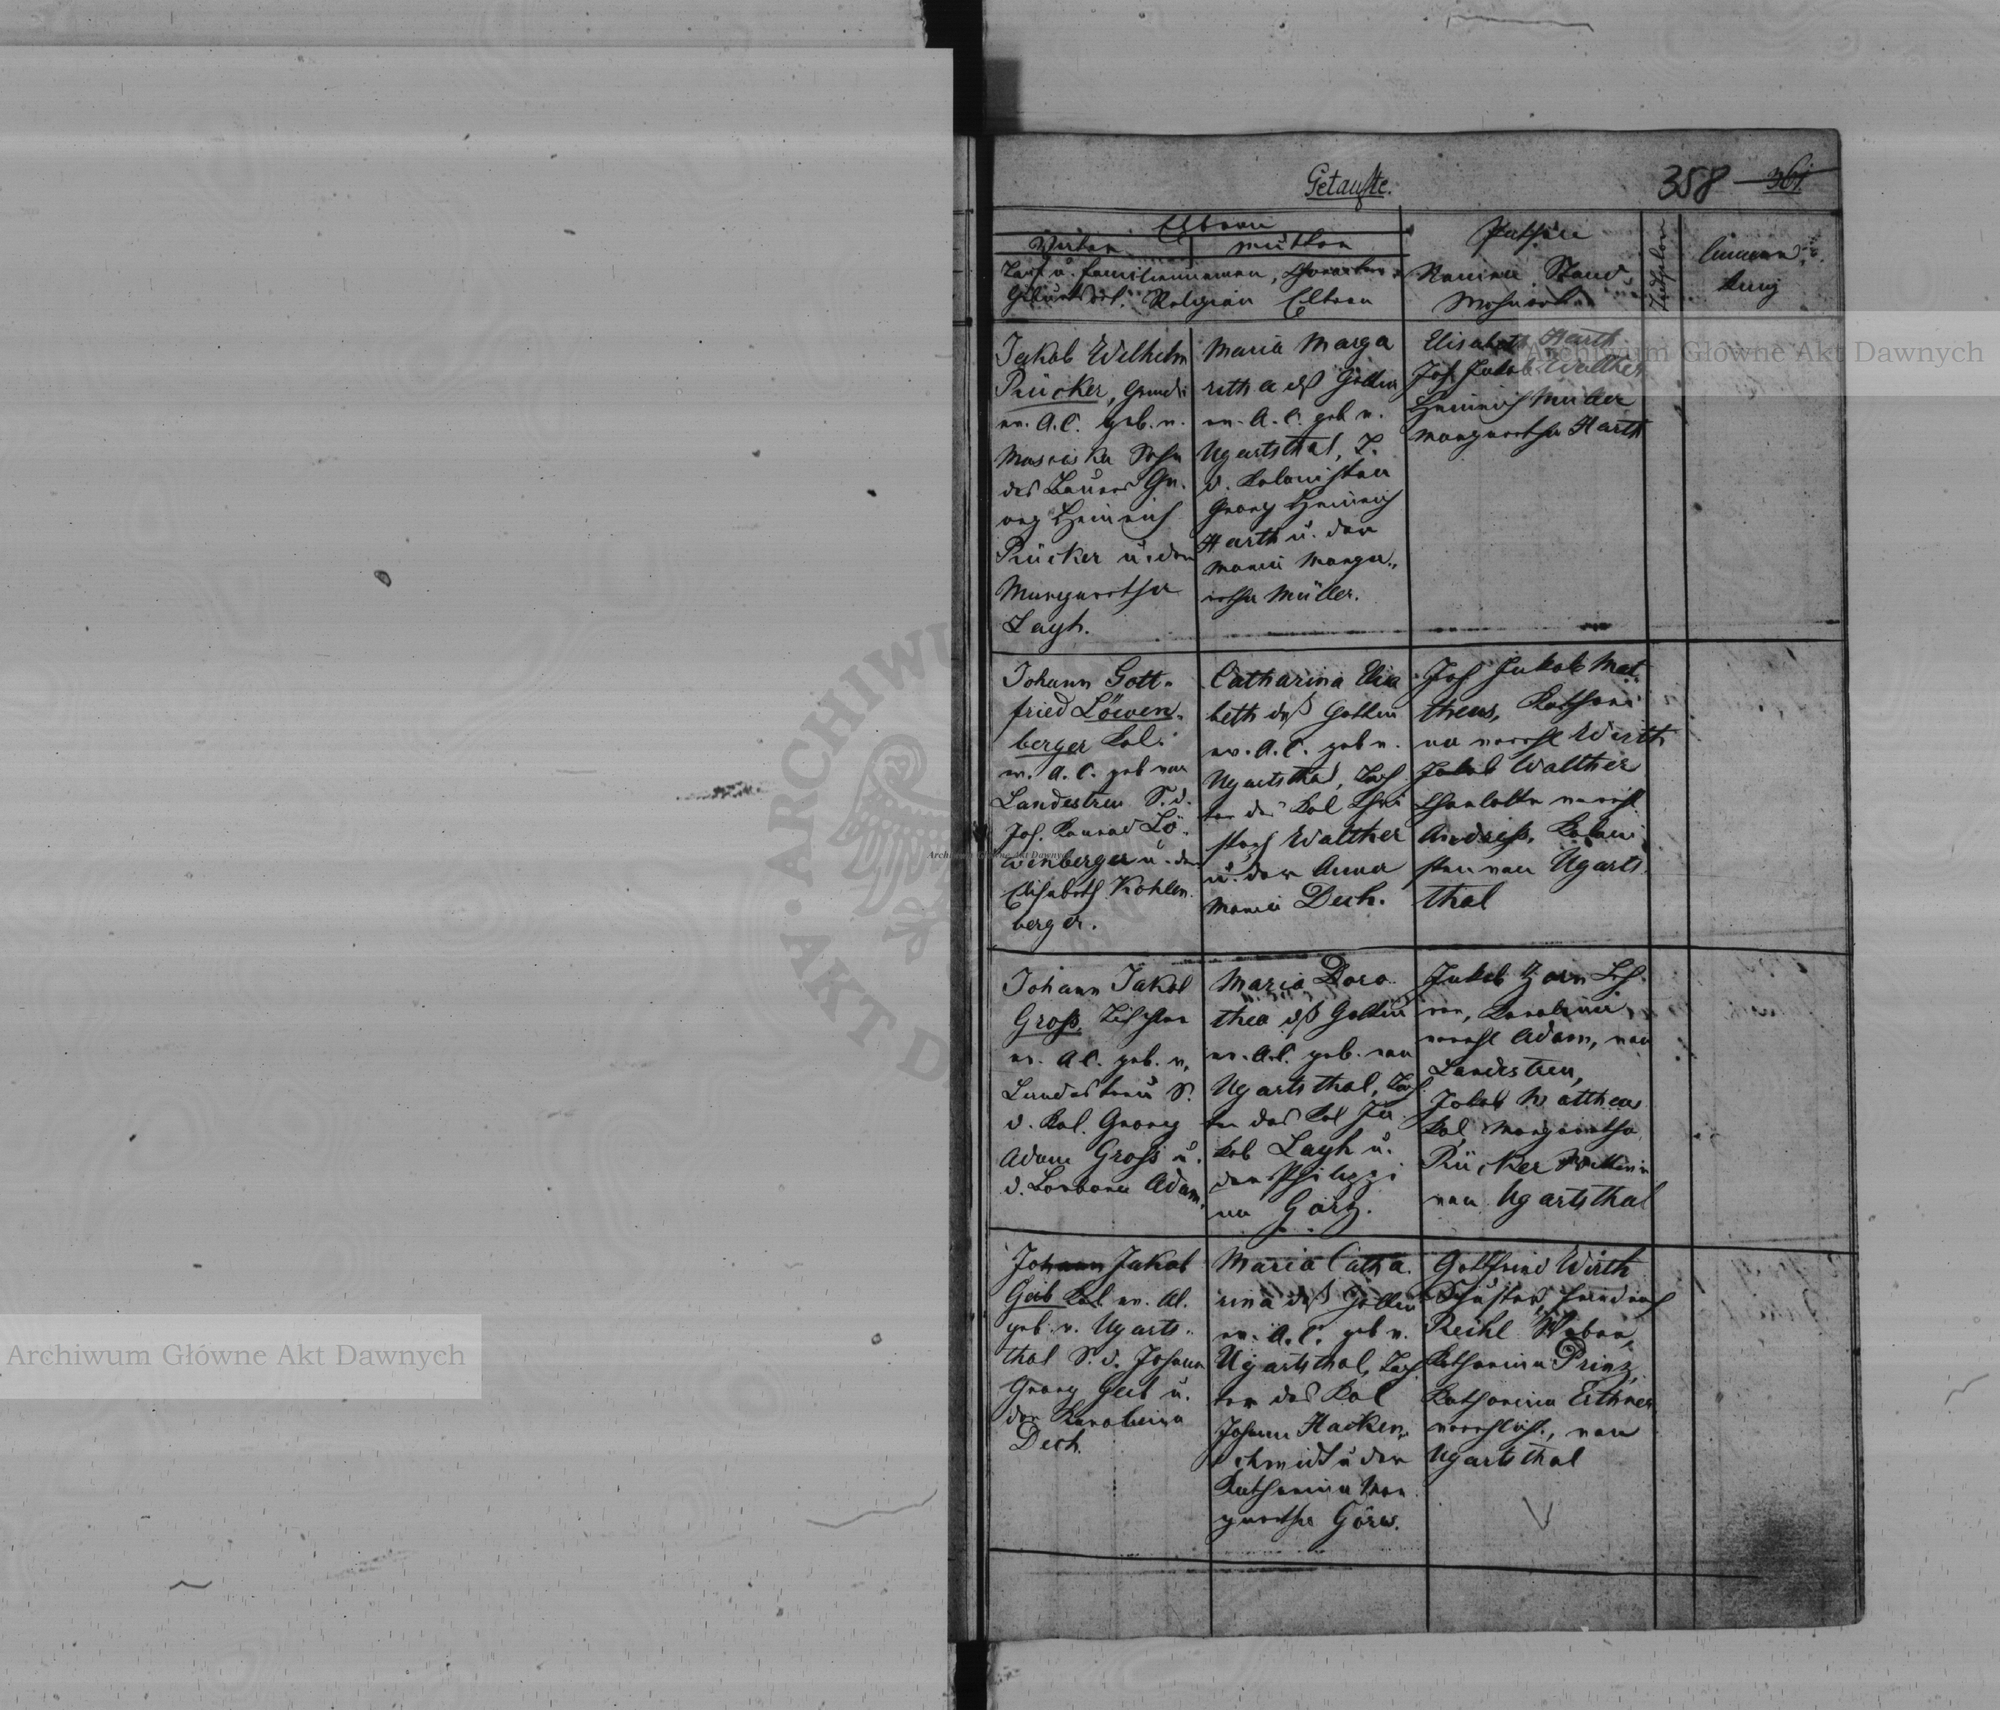 Getaufte.
358 361
Eltern
Vater
Mutter
Tauf u. Familiennamen, Charakter
Geburtsort. Religion Eltern
Pathen
Namen Stand
Wohnort
Anmer
kung
Jakob Wilhelm
Rücker, Grundw
ev. A.C. geb. v.
Mosciska Sohn
des Bauers Ge.
org Heinrich
Rücker u. der
Margaretha
Layh.
Maria Marga
retha deß Gattin
ev. A. C. geb v.
Ugartsthal, T.
d. Kolonisten
Georg Heinrich
Harth u. der
Maria Marga„
retha Müller.
Elisabeth Harth
Joh Jakob Walther
Heinrich Müller
Margaretha Harth
Johann Gott„
fried Löwen„
berger Kol.
ev. A. C. geb von
Landestreu S. d.
Joh. Konrad Lö„
wenberger u. der
Elisabeth Kohlen
berger.
Catharina Elisa
beth deß Gattin
ev. A. C. geb v.
Ugartsthal, Toch
ter des Kol Chri
stoph Walther
u. der Anna
Maria Dech.
Joh Jakob Mat„
theus, Kathari
na verehl Wirth
Jakob Walther
Charlotte verehl
Andreß, Koloni
sten von Ugarts
thal
Johann Jakob
Groß, Tischler
ev. AC. geb. v.
Landestreu S.
d. Kol. Georg
Adam Groß u.
d. Barbara Adam
Maria Doro
thea deß Gattin
ev. A.C. geb. von
Ugartsthal, Toch
ter des Kol Ja
kob Layh u.
der Philippi
na Görz.
Jakob Zorn Leh
rer, Karoline
verehl Adam, von
Landestreu,
Jakob Mattheus
Kol, Margaretha
Rücker Wittwe
von Ugartsthal
Johann Jakob
Geib Kol ev. AC.
geb. v. Ugarts„
thal S. d. Johann
Georg Geib u.
der Karolina
Dech.
Maria Catha
rina deß Gattin
ev. A.C. geb v.
Ugartsthal, Toch
ter des Kol
Johann Hacken„
schmidt u der
Katharina Mar
garetha Görw.
Gottfried Wirth
Schuster, Friedrich
Reichl Weber,
Katharina Prinz,
Katharina Erthner
verehlicht, von
Ugartsthal
Archiwum Główne Akt Dawnych
Archiwum Główne Akt Dawnych
Archiwum Główne Akt Dawnych